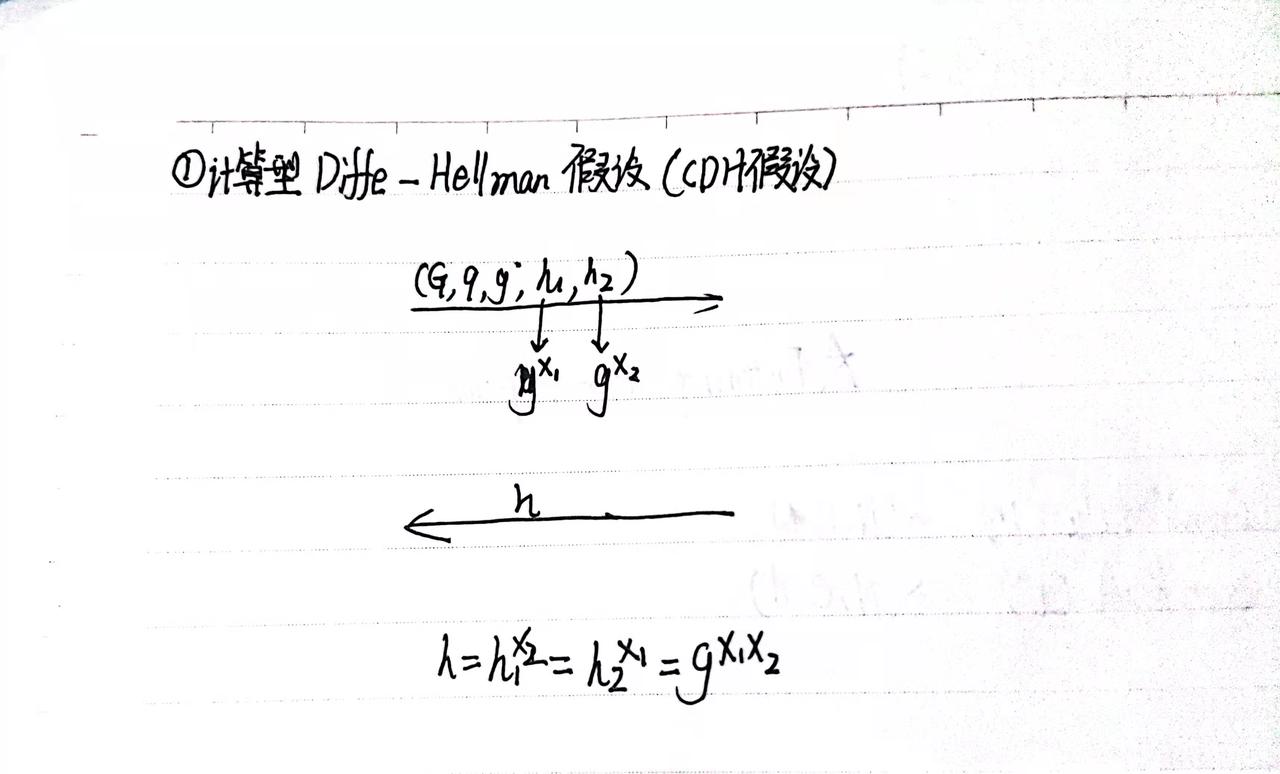 ①计算型 Diffe-Hellman 假设 (CDH假设)
(G, q, g, h₁, h₂)
g^x₁ g^x₂
h
h = h₁^x₂ = h₂^x₁ = g^x₁x₂